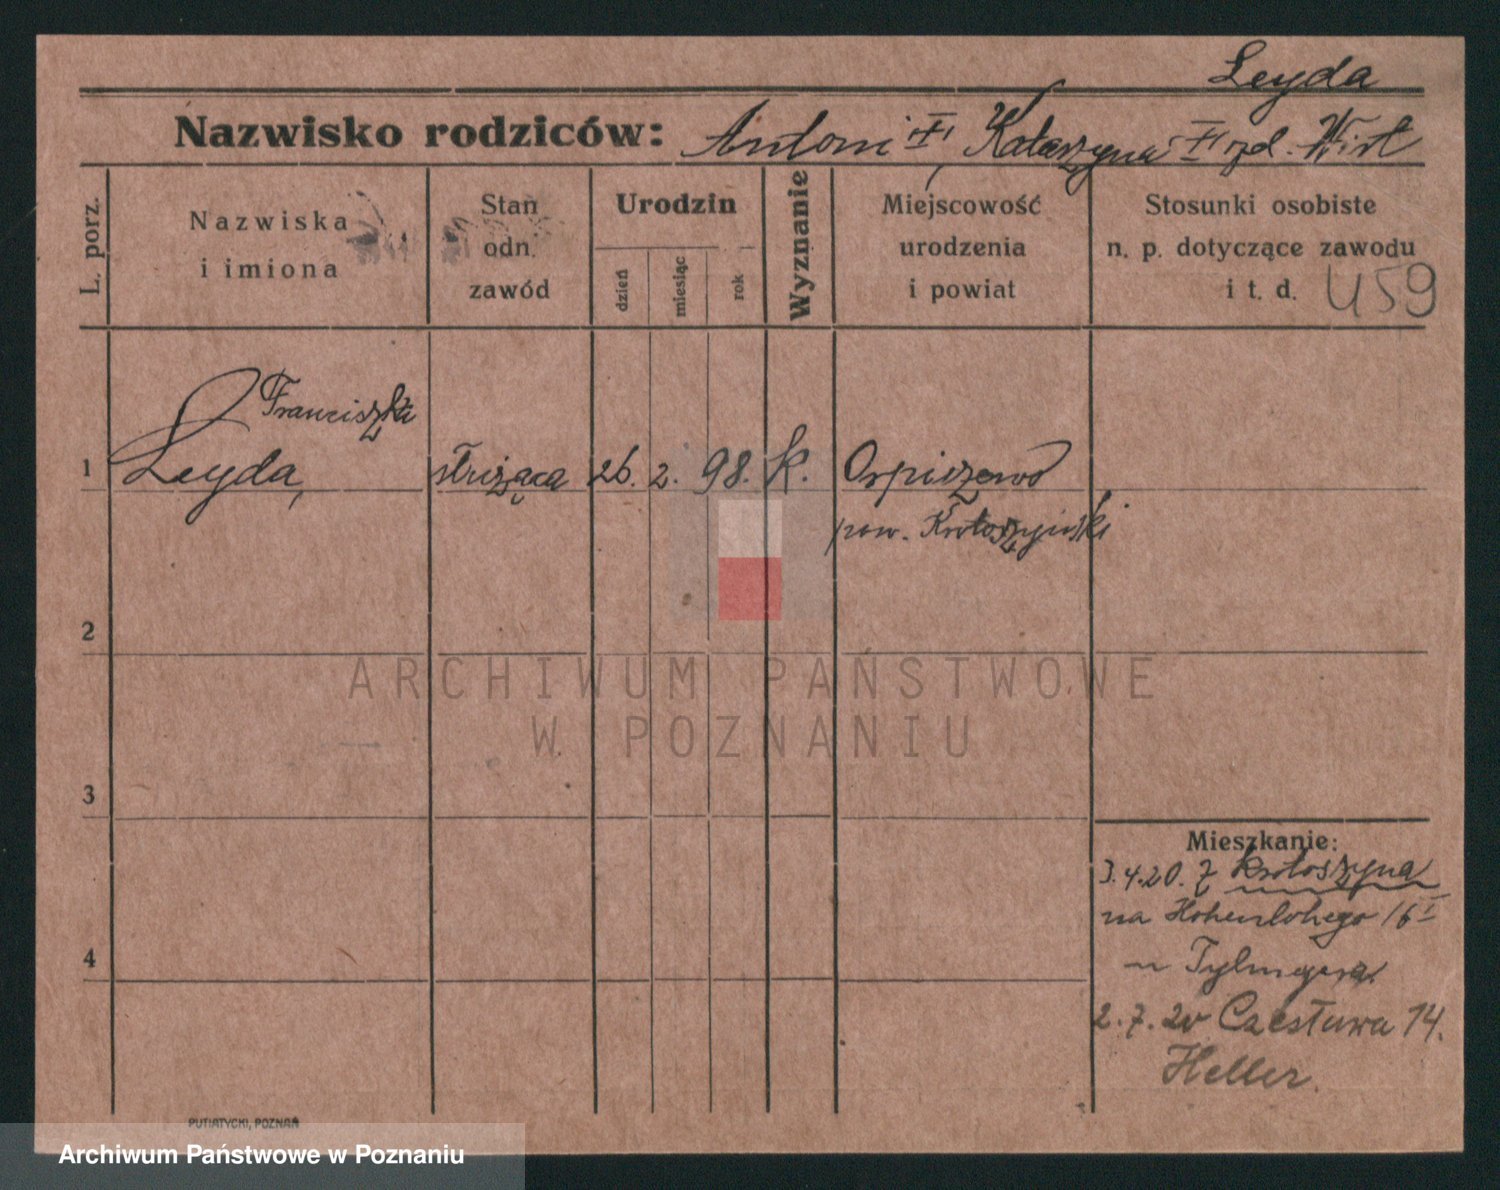 Leyda
Nazwisko rodziców: Antoni, Katarzyna
L. porz.
Nazwiska
i imiona
Stan
odn.
zawód
Urodzin
dzień
miesiąc
rok
Wyznanie
Miejscowość
urodzenia
i powiat
Stosunki osobiste
n. p. dotyczące zawodu
i t. d. 459
Franciszka
1 Leyda, służąca 26. 2. 98. k. Orpiszewo
pow. Krotoszyński
2
3
4
Mieszkanie:
3.4.20. z Krotoszyna
na Hohenlohego 16 I
2.7.20 14.
Heller.
PUTIATYCKI, POZNAŃ
ARCHIWUM PAŃSTWOWE
W POZNANIU
Archiwum Państwowe w Poznaniu